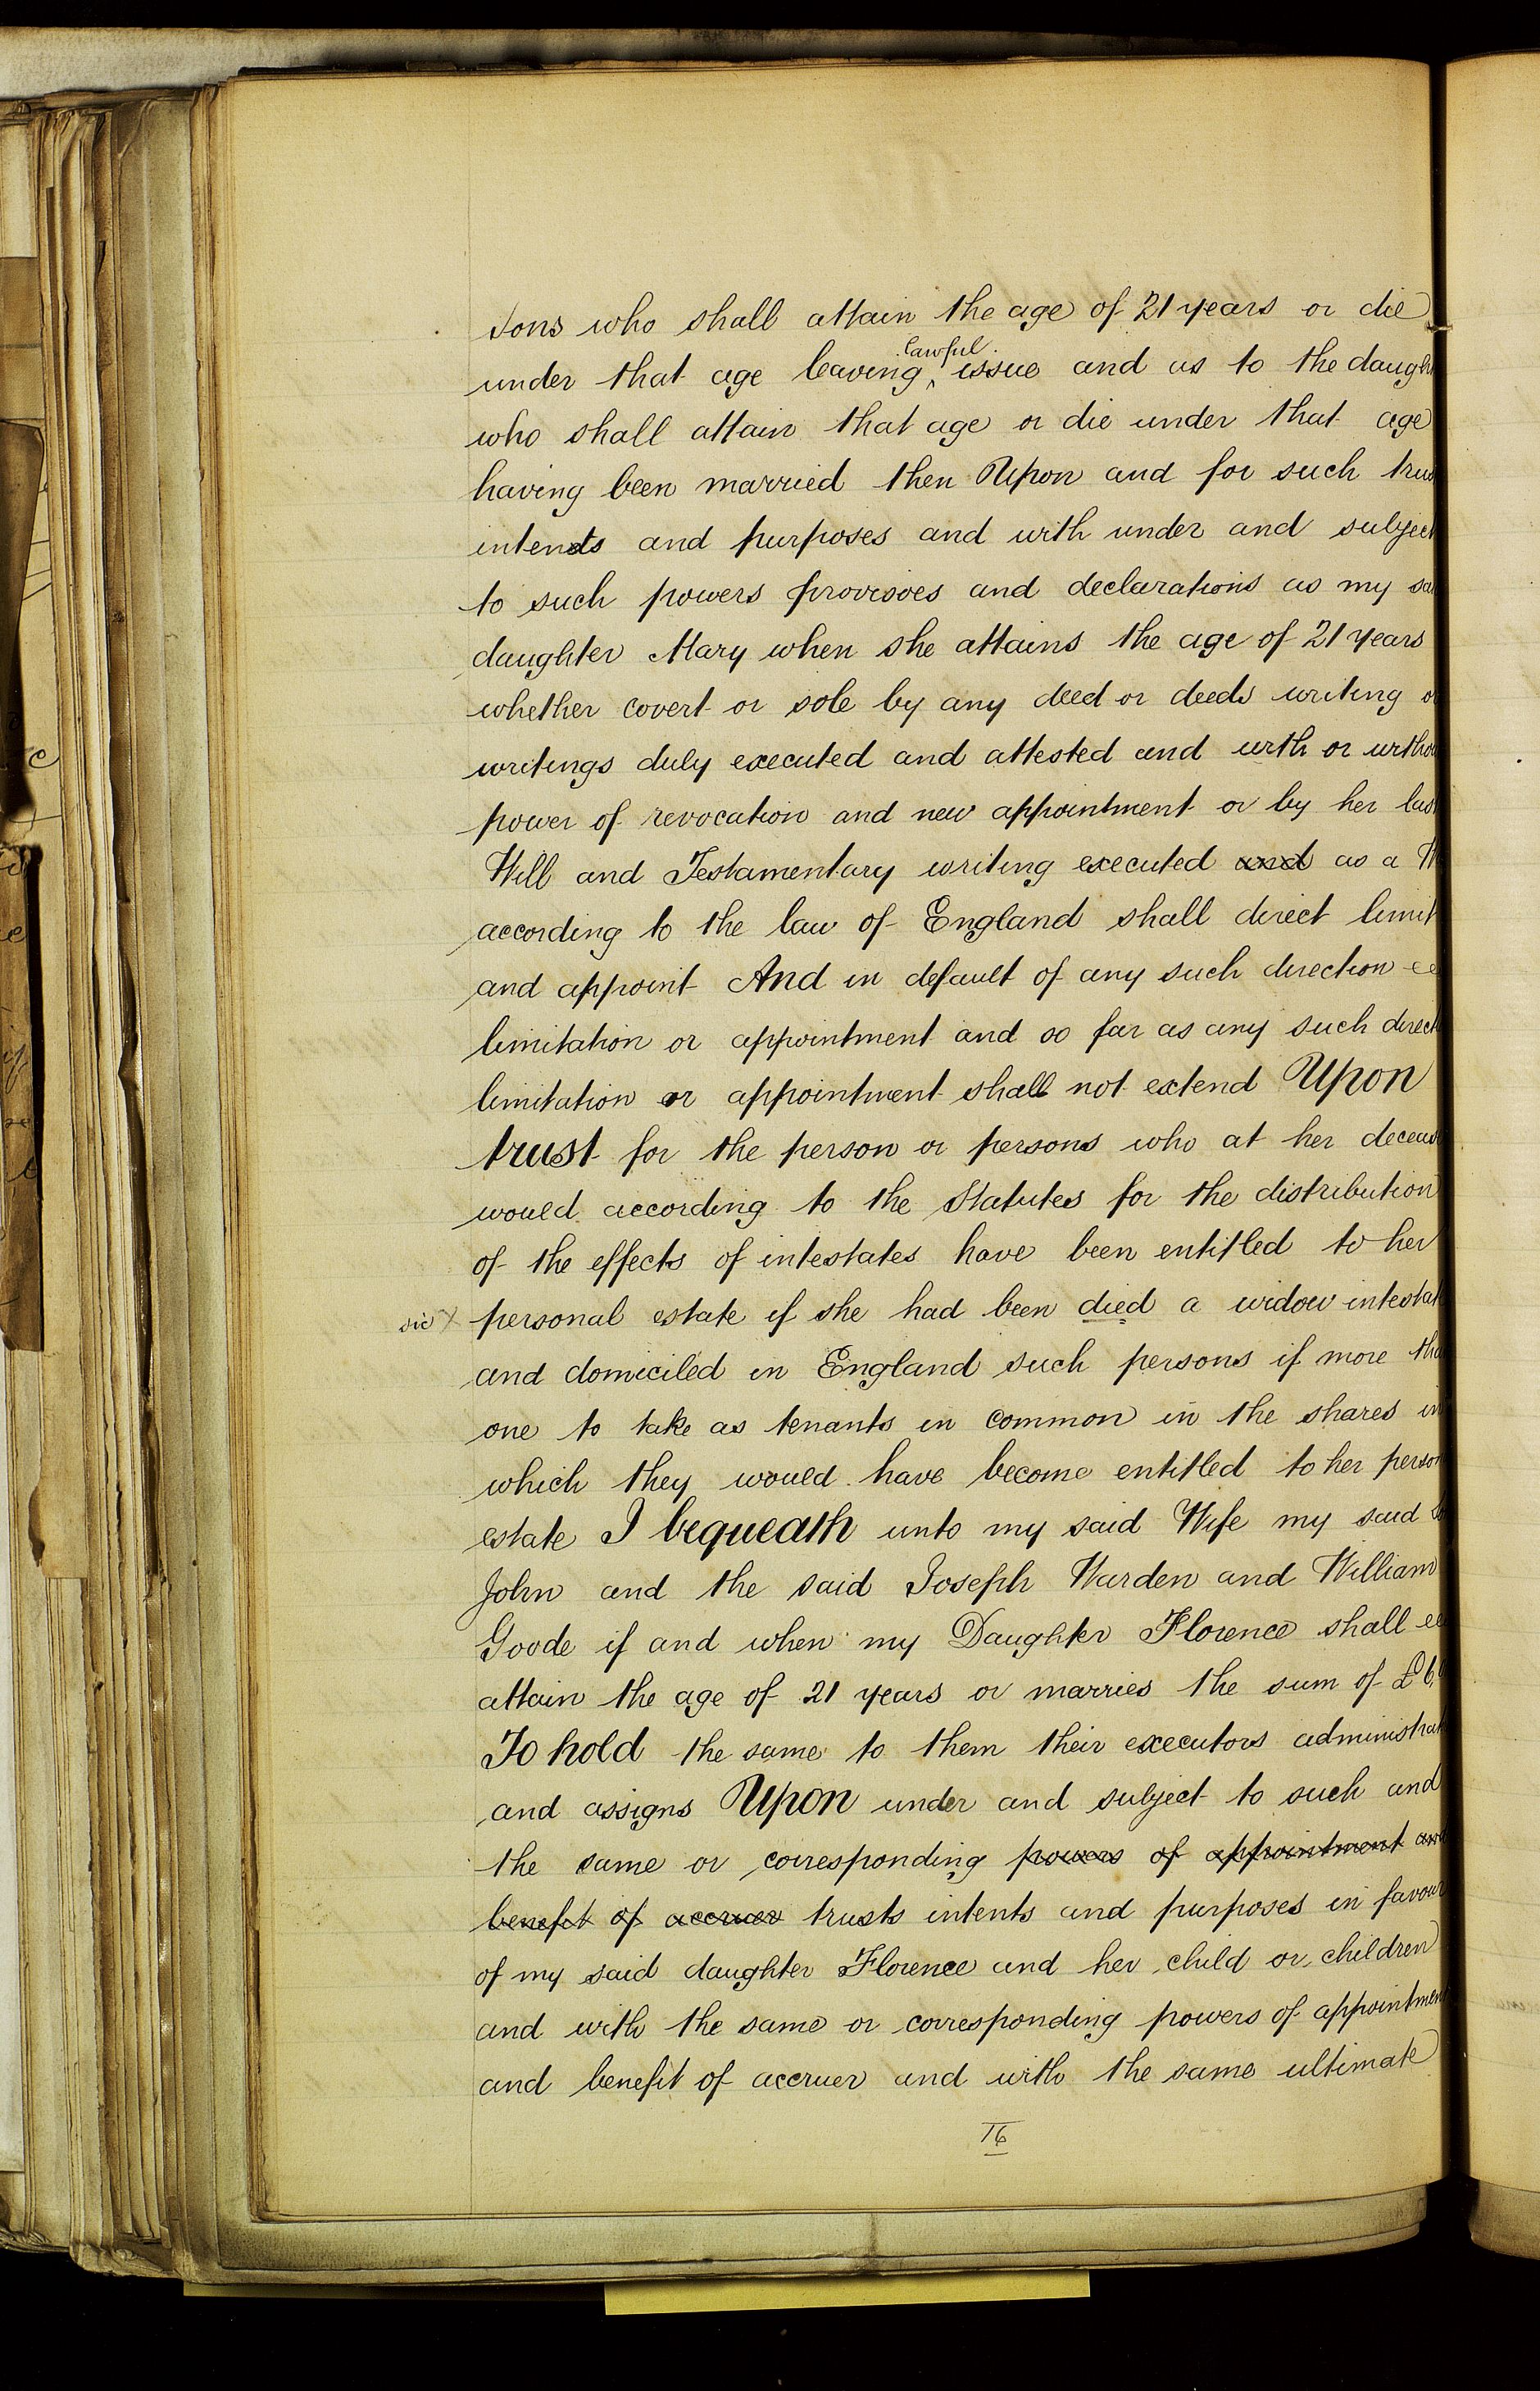 sons who shall attain the age of 21 years or die
under that age leaving lawful issue and as to the daugh
who shall attain that age or die under that age
having been married then Upon and for such trus
intents and purposes and with under and subject
to such powers provisoes and declarations as my sa
daughter Mary when she attains the age of 21 years
whether covert or sole by any deed or deeds writing o
writings duly executed and attested and with or witho
power of revocation and new appointment or by her las
Will and Testamentary writing executed and as a W
according to the law of England shall direct limit
and appoint And in default of any such direction
limitation or appointment and so far as any such direct
limitation or appointment shall not extend Upon
trust for the person or persons who at her deceas
would according to the Statutes for the distribution
of the effects of intestates have been entitled to her
sic X personal estate if she had been died a widow intestat
and domiciled in England such persons if more tha
one to take as tenants in common in the shares in
which they would have become entitled to her person
estate I bequeath unto my said Wife my said
John and the said Joseph Warden and William
Goode if and when my Daughter Florence shall
attain the age of 21 years or marries the sum of £6,
To hold the same to them their executors administrat
and assigns Upon under and subject to such and
the same or corresponding powers of appointment and
benefit of accruer trusts intents and purposes in favour
of my said daughter Florence and her child or children
and with the same or corresponding powers of appointment
and benefit of accruer and with the same ultimate
16